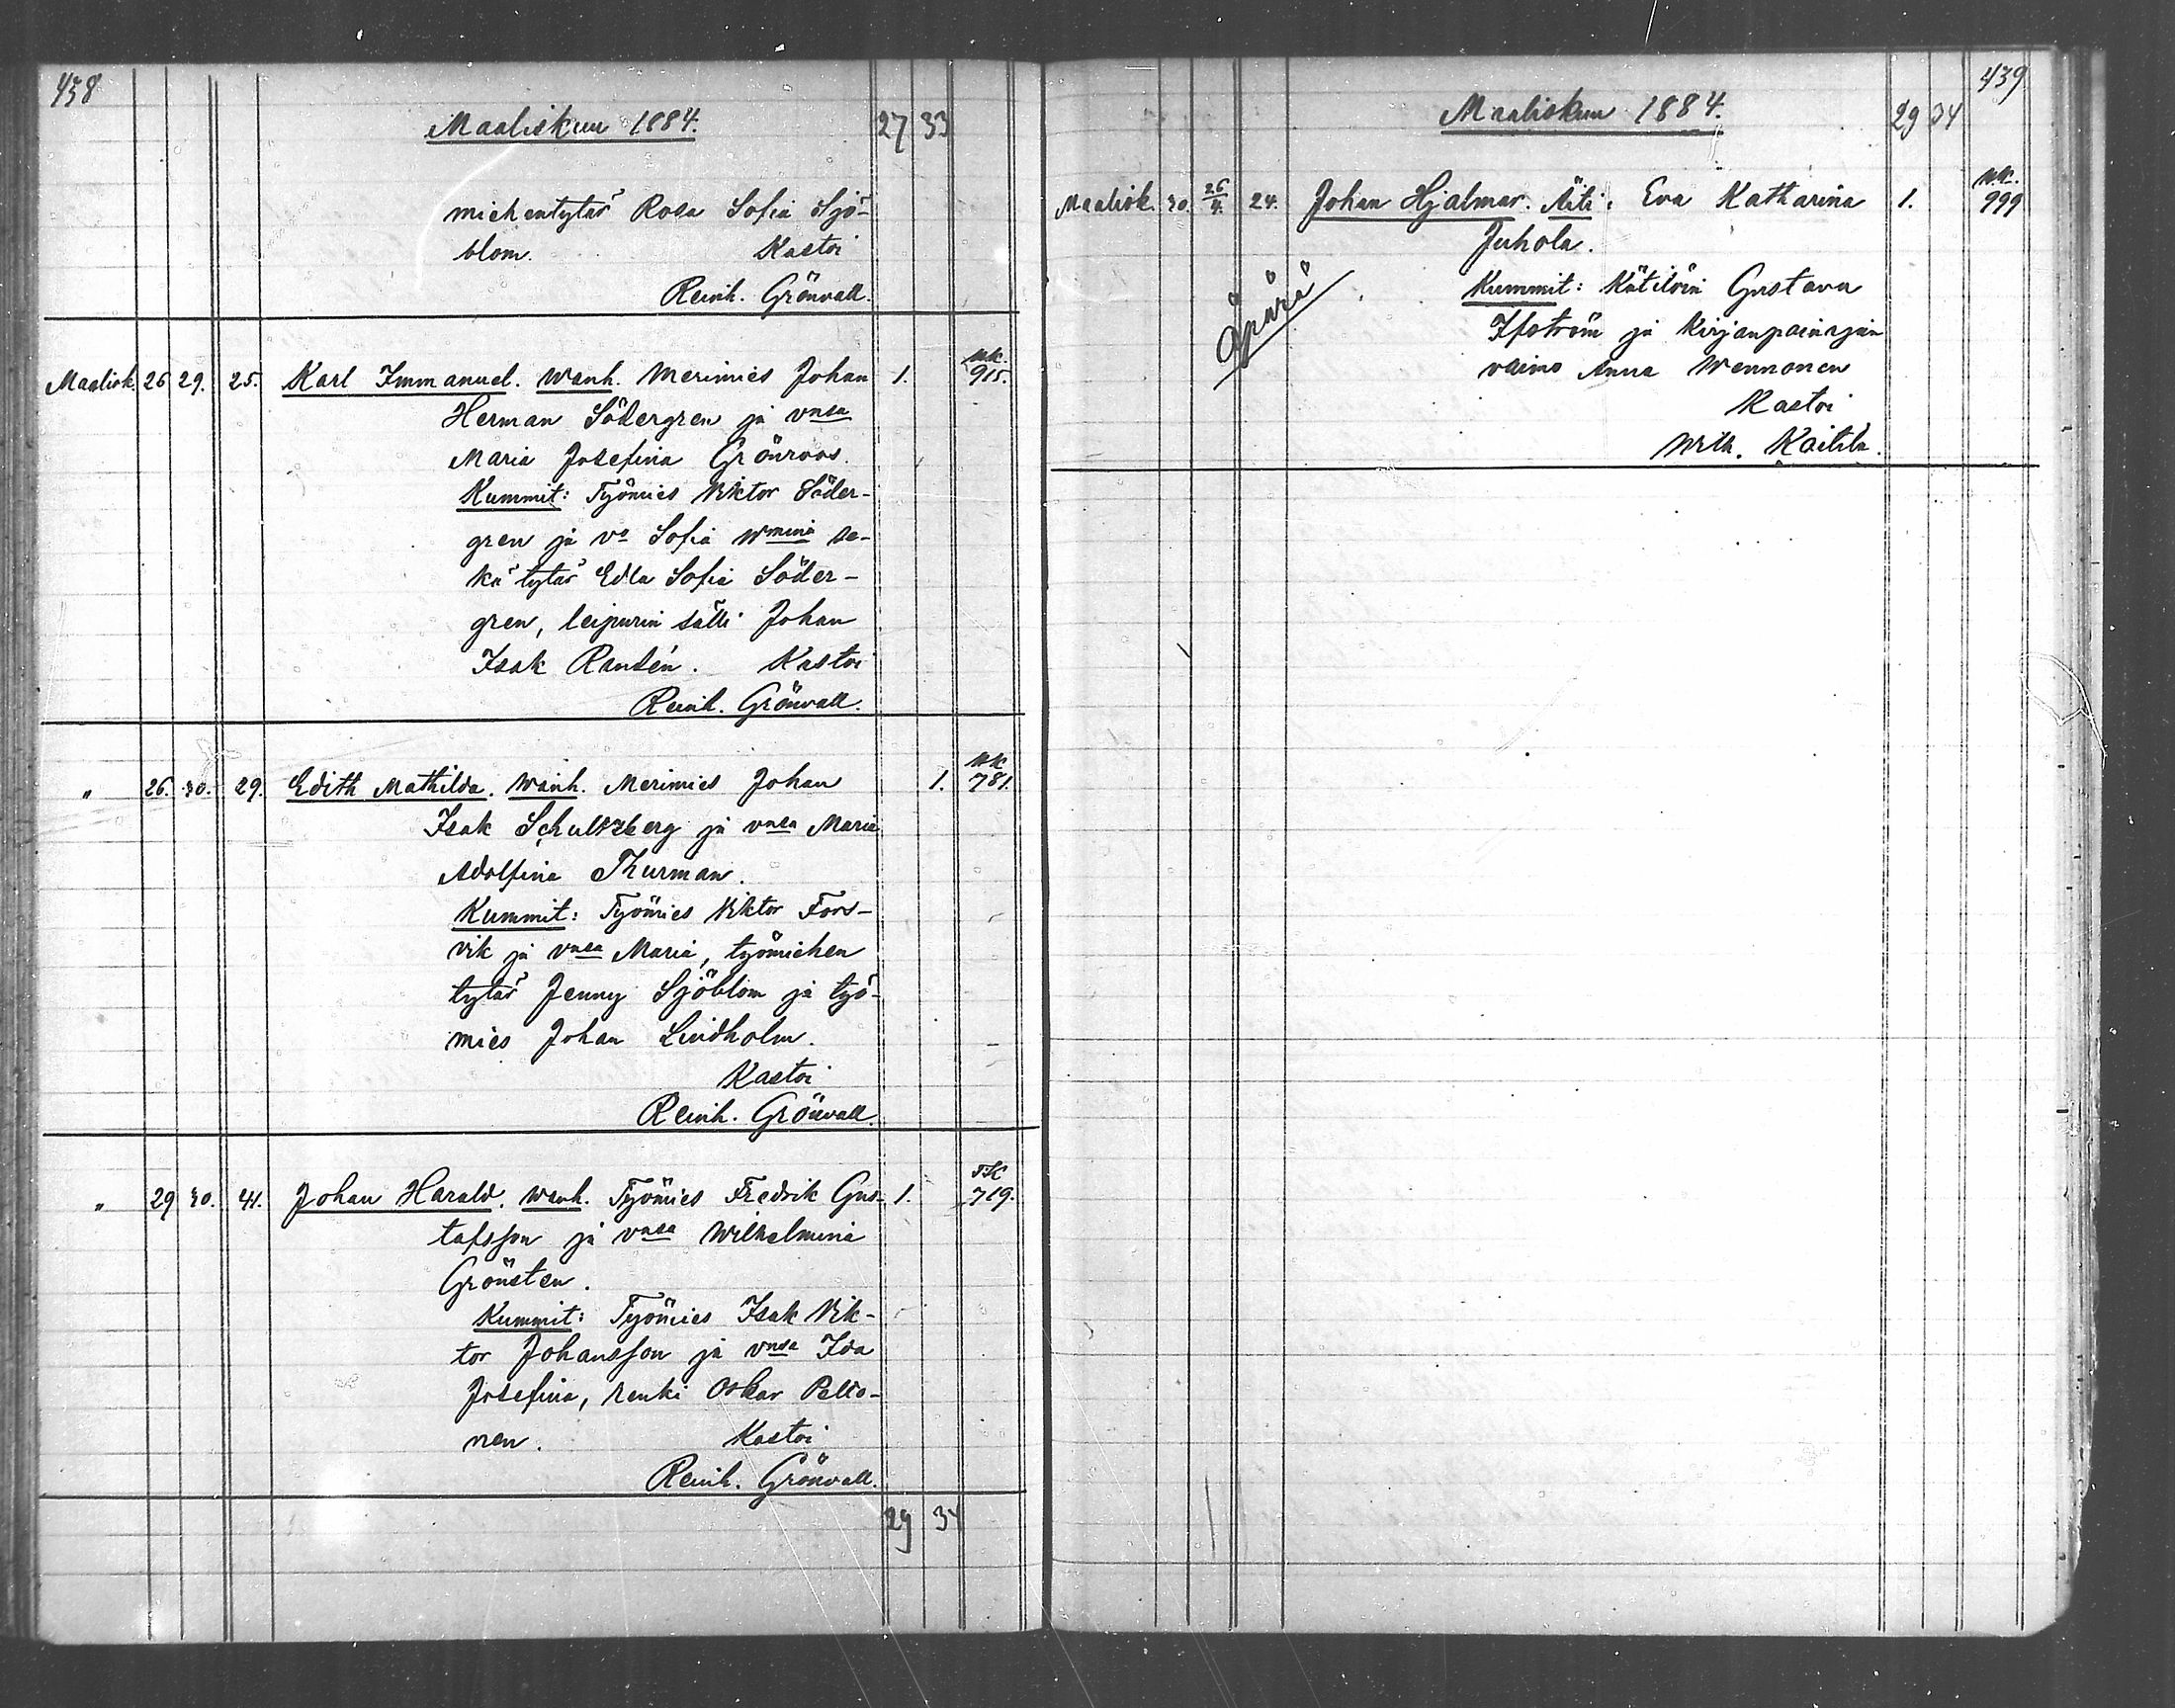 438
Maaliskuu 1884. 27 33
miehentytär Rosa Sofia Sjö-
blom. Kastoi
Reinh. Grönvall.
Maalisk. 26 29. 25. Karl Immanuel. Wanh. Merimies Johan 1. UK. 915.
Herman Södergren ja vnsa
Maria Josefina Grönroos.
Kummit: Työmies Viktor Söder-
gren ja vo Sofia Wmina se-
kä tytär Edla Sofia Söder-
gren, leipurin sälli Johan
Isak Randén. Kastoi
Reinh. Grönvall.
" 26. 30. 29. Edith Mathilda. Wanh. Merimies Johan 1. UK 781.
Isak Schultzberg ja vnsa Maria
Adolfina Thurman.
Kummit: Työmies Viktor Fors-
vik ja vnsa Maria, työmiehen
tytär Jenny Sjöblom ja työ-
mies Johan Lindholm.
Kastoi
Reinh. Grönvall.
" 29 30. 41. Johan Harald. Wanh. Työmies Fredrik Gus- 1. 719.
tafsson ja vnsa Wilhelmina
Grönsten.
Kummit: Työmies Isak Vik-
tor Johansson ja vnsa Ida
Josefina, renki Oskar Pelto-
nen. Kastoi
Reinh. Grönvall.
29 34
439
Maaliskuu 1884. 29 34
Maalisk. 30. 26/4. 24. Johan Hjalmar. Äiti: Eva Katharina 1. 999
Juhola.
Äpärä
Kummit: Kätilöin Gustava
Ifström ja Kirjanpainajan
vaimo Anna Wennonen
Kastoi
Wilh. Kaitila.